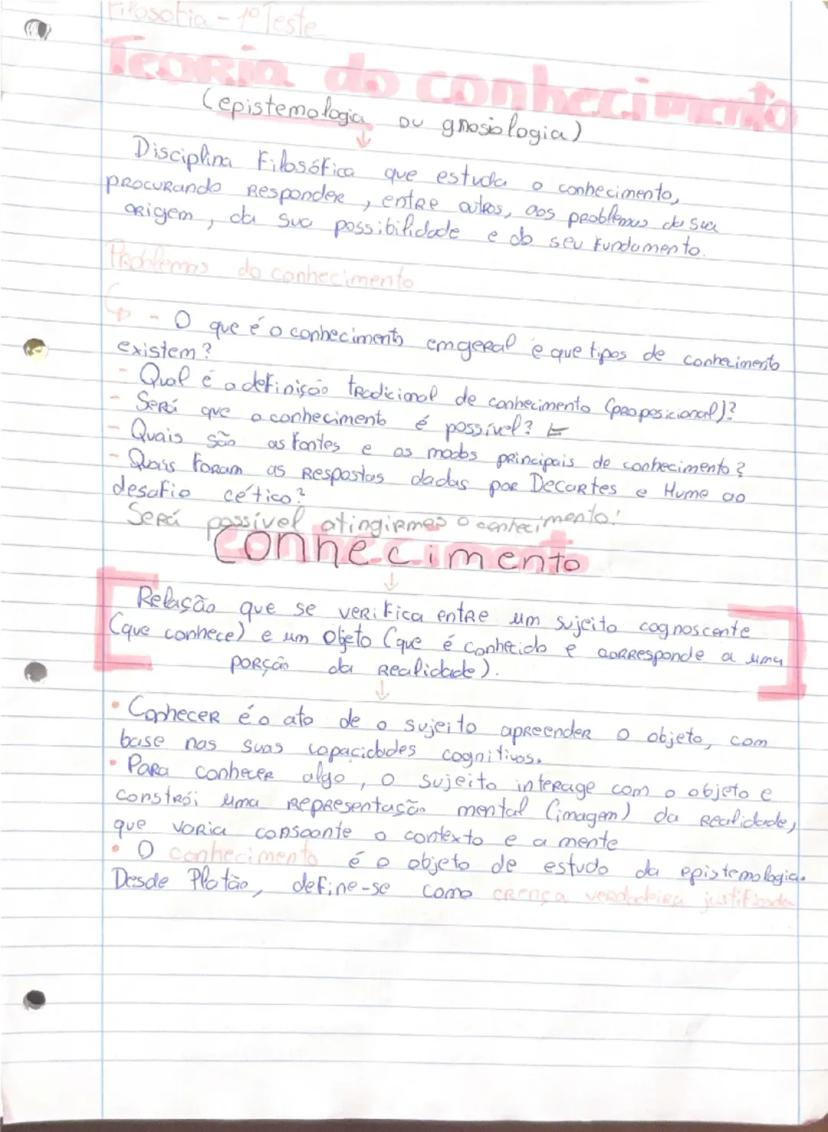 Filosofia - 1º Teste
Teoria do conhecimento
(epistemologia ou gnosiologia)
Disciplina Filosófica que estuda o conhecimento,
procurando responder, entre outros, aos problemas da sua
origem, da sua possibilidade e do seu fundamento.
Problemas do conhecimento
- O que é o conhecimento em geral e que tipos de conhecimento
existem?
- Qual é a definição tradicional de conhecimento (proposicional)?
- Será que o conhecimento é possível?
- Quais são as fontes e os modos principais de conhecimento?
- Quais foram as respostas dadas por Decartes e Hume ao
desafio cético?
Será possível atingirmos o conhecimento!
Conhecimento
Relação que se verifica entre um sujeito cognoscente
(que conhece) e um objeto (que é conhecido e corresponde a uma
porção da realidade).
• Conhecer é o ato de o sujeito apreender o objeto, com
base nas suas capacidades cognitivas.
• Para conhecer algo, o sujeito interage com o objeto e
constrói uma representação mental (imagem) da realidade,
que varia consoante o contexto e a mente
• O conhecimento é o objeto de estudo da epistemologia.
Desde Platão, define-se como crença verdadeira justificada